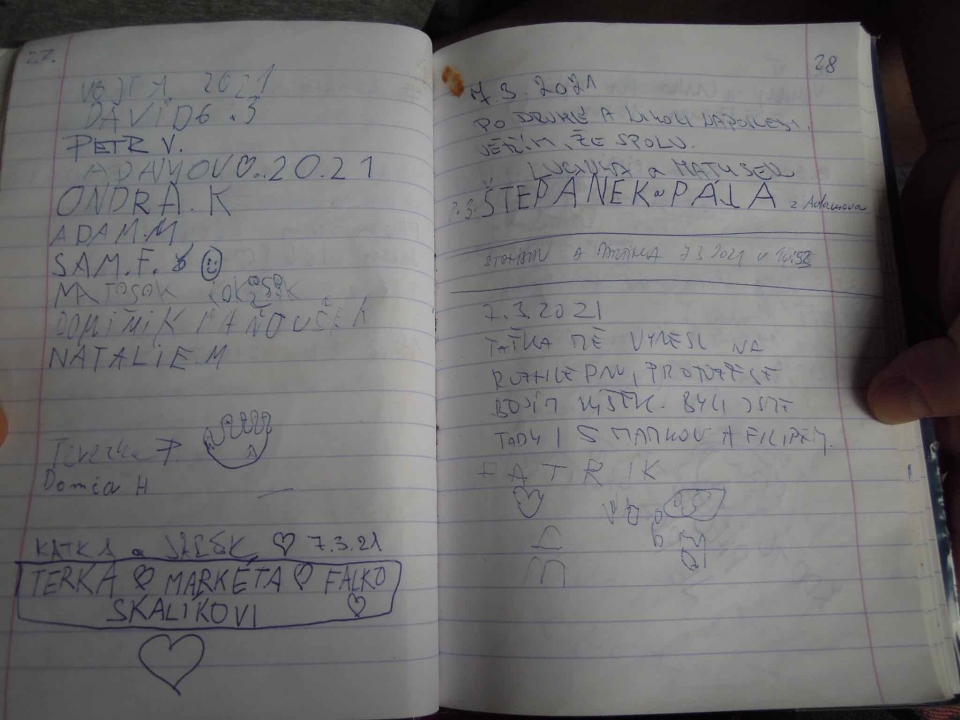 27.
VOJTA 2021
DAVID 6.3
PETR V.
ADAMOV 2021
ONDRA.K
ADAM.M
SAM.F.
MATOSOK
DOMINIK HANOUŠEK
NATALIE M
Terezka T
Domča H
KATKA a 7.3.21
TERKA MARKÉTA FALKO
SKALÍKOVI
28
7.3.2021
PO DRUHÉ A NAPOSLEDY.
VĚŘÍM, ŽE SPOLU.
a MATÚŠEK
7.3. ŠTĚPÁNEK a PÁJA z Adamova
A MARTINA 7.3.2021 v
7.3.2021
TAŤKA MĚ VYNESL NA
ROZHLEDNU, PROTOŽE SE
BOJÍM VÝŠEK. BYLI JSME
TADY I S MAMKOU A FILIPEM.
PATRIK